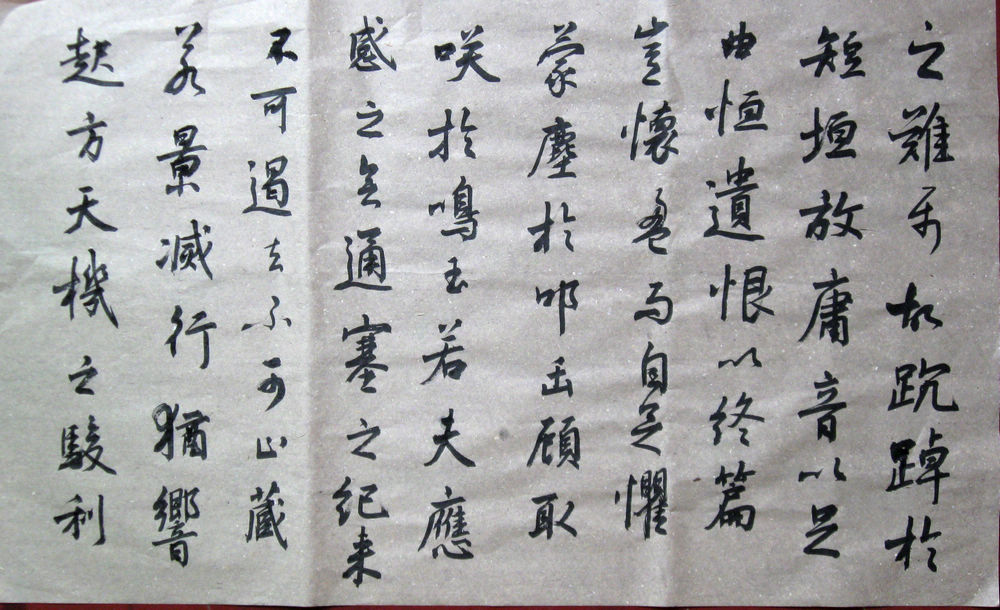 之難属故踸踔於
短垣放庸音以足
曲恒遺恨以終篇
豈懷盈而自足懼
蒙塵於叩缶顧取
咲於鳴玉若夫應
感之会通塞之紀来
不可遏去不可止藏
若景滅行猶響
起方天機之駿利